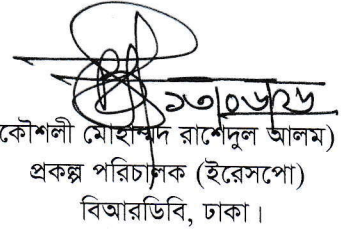 ১৩/০৬/২৬
কৌশলী মোহাম্মদ রাশেদুল আলম)
প্রকল্প পরিচালক (ইরেসপো)
বিআরডিবি, ঢাকা।